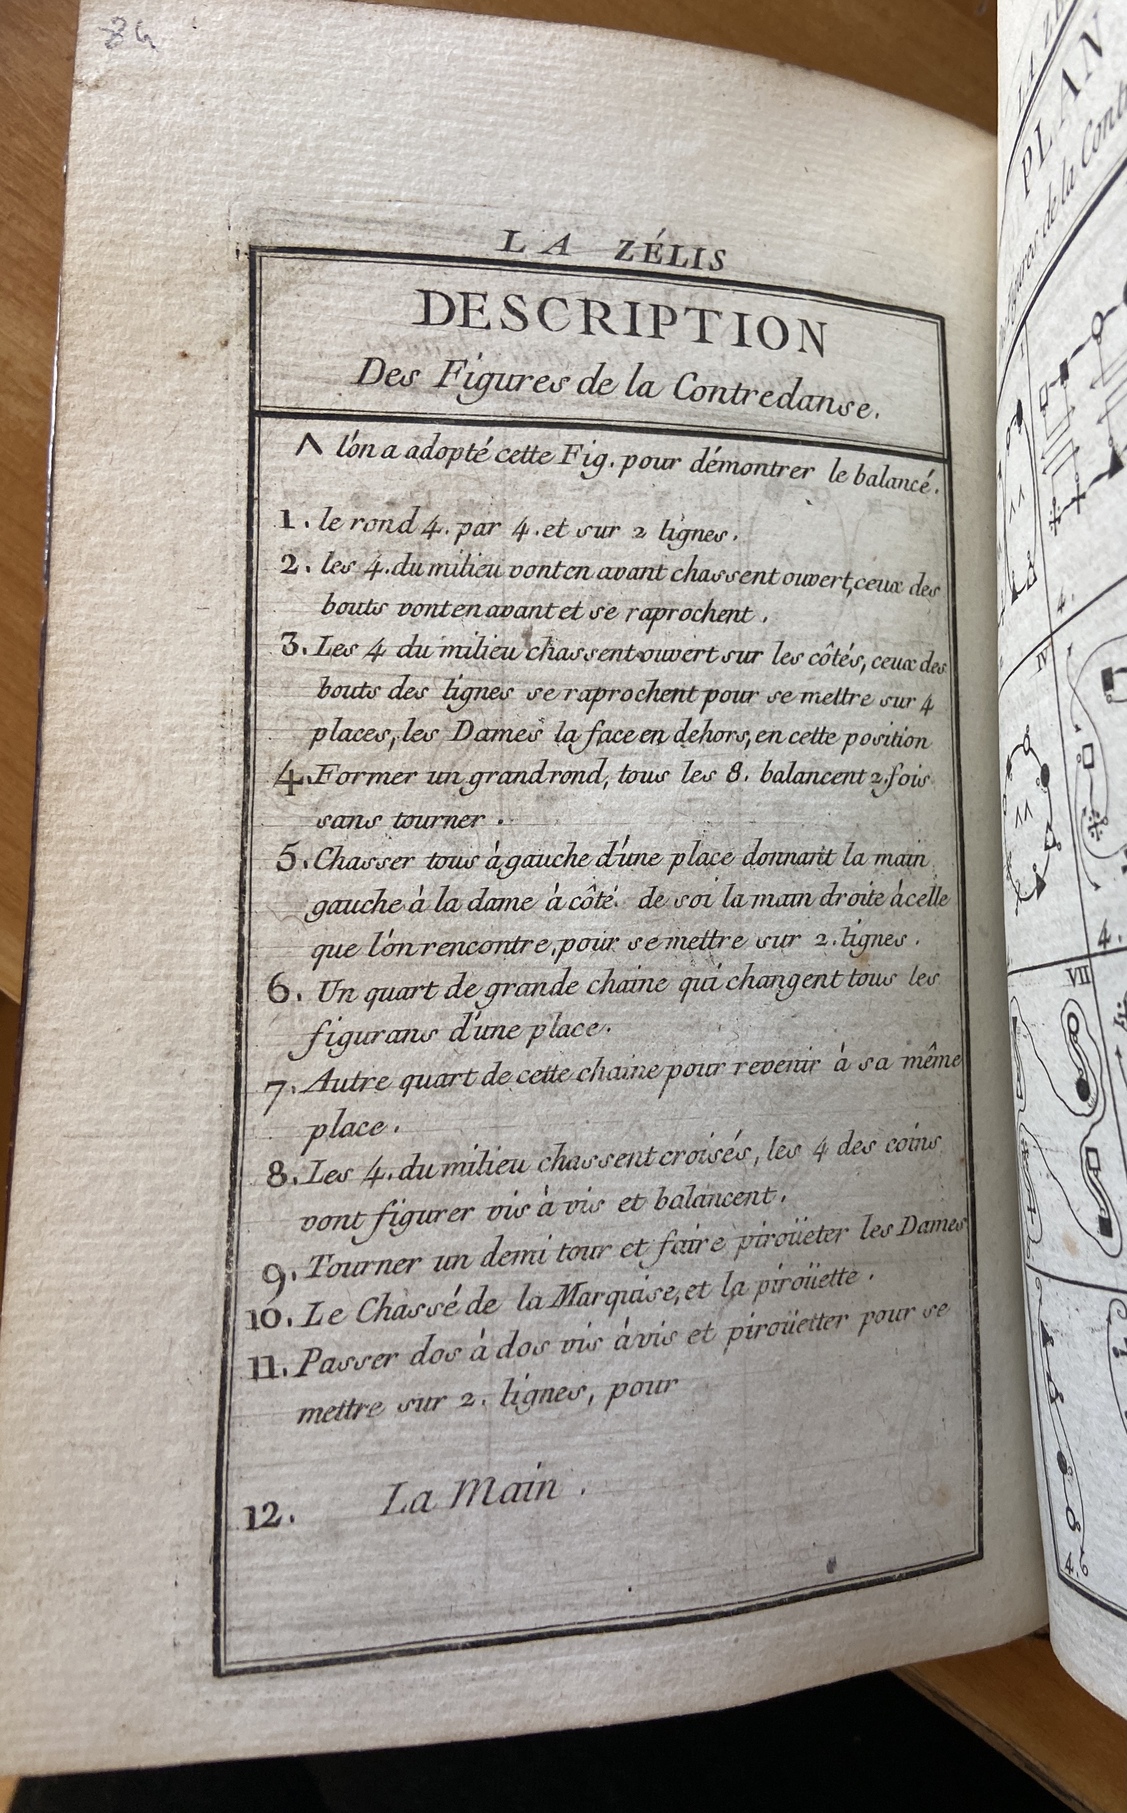 84
LA ZÉLIS
DESCRIPTION
Des Figures de la Contredanse.
Λ l'on a adopté cette Fig. pour démontrer le balancé.
1. le rond 4. par 4. et sur 2 lignes.
2. les 4. du milieu vont en avant chassent ouvert, ceux des
bouts vont en avant et se raprochent.
3. Les 4 du milieu chassent ouvert sur les côtés, ceux des
bouts des lignes se raprochent pour se mettre sur 4
places, les Dames la face en dehors, en cette position
4. Former un grand rond, tous les 8. balancent 2. fois
sans tourner.
5. Chasser tous à gauche d'une place donnant la main
gauche à la dame à côté de soi la main droite à celle
que l'on rencontre, pour se mettre sur 2. lignes.
6. Un quart de grande chaine qui changent tous les
figurans d'une place.
7. Autre quart de cette chaine pour revenir à sa même
place.
8. Les 4. du milieu chassent croisés, les 4 des coins
vont figurer vis à vis et balancent.
9. Tourner un demi tour et faire piroüeter les Dames
10. Le Chassé de la Marquise, et la piroüette.
11. Passer dos à dos vis à vis et piroüetter pour se
mettre sur 2. lignes, pour
12. La Main.
PLAN
figures de la Contr
4.
IV
4.
VII
4.